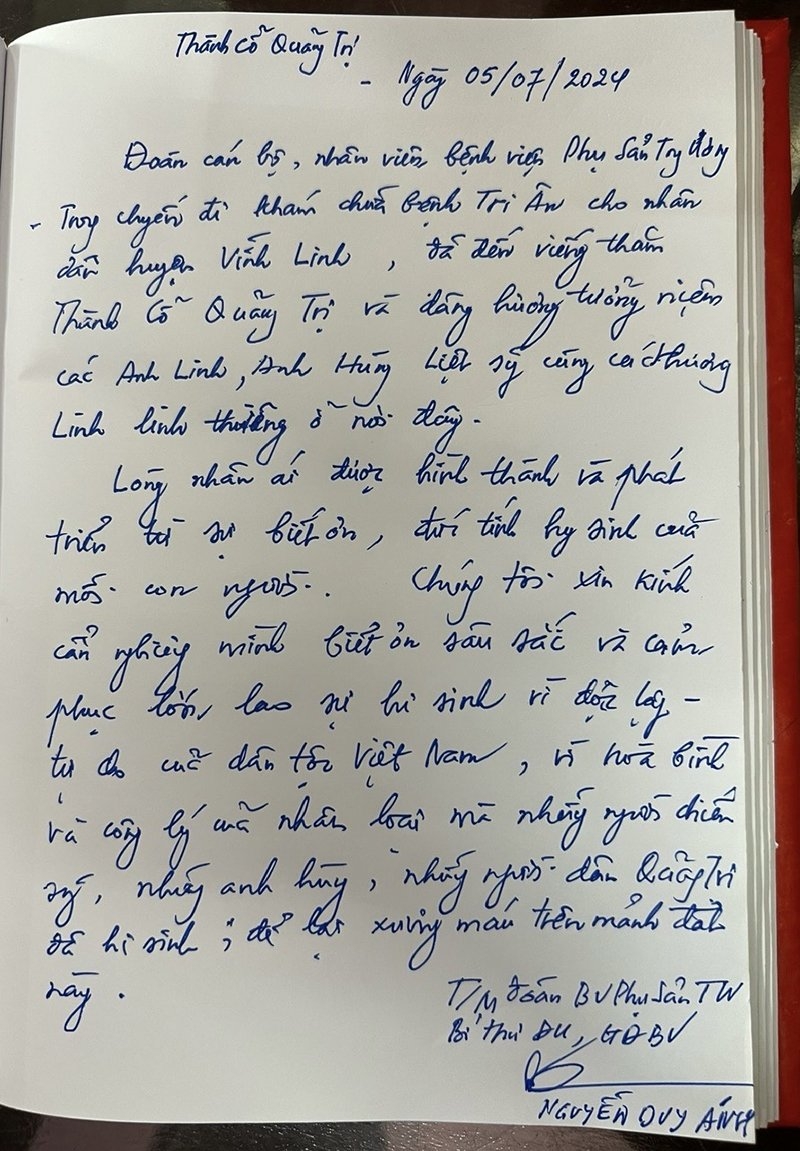 Thành cổ Quảng Trị
- Ngày 05/07/2024
Đoàn cán bộ, nhân viên bệnh viện Phụ Sản Trg Ương
- Trong chuyến đi khám chữa bệnh Tri Ân cho nhân
dân huyện Vĩnh Linh, đã đến viếng thăm
Thành Cổ Quảng Trị và dâng hương tưởng niệm
các Anh Linh, Anh Hùng Liệt sỹ cùng các hương
Linh linh thiêng ở nơi đây.
Lòng nhân ái được hình thành và phát
triển từ sự biết ơn, đức tính hy sinh của
mỗi con người. Chúng tôi xin kính
cẩn nghiêng mình biết ơn sâu sắc và cảm
phục lớn lao sự hi sinh vì độc lập -
tự do của dân tộc Việt Nam, vì hoà bình
và công lý của nhân loại mà những người chiến
sỹ, những anh hùng, những người dân Quảng Trị
đã hi sinh, để lại xương máu trên mảnh đất
này.
T/M đoàn BV Phụ Sản TW
Bí thư ĐU, GĐBV
NGUYỄN DUY ÁNH